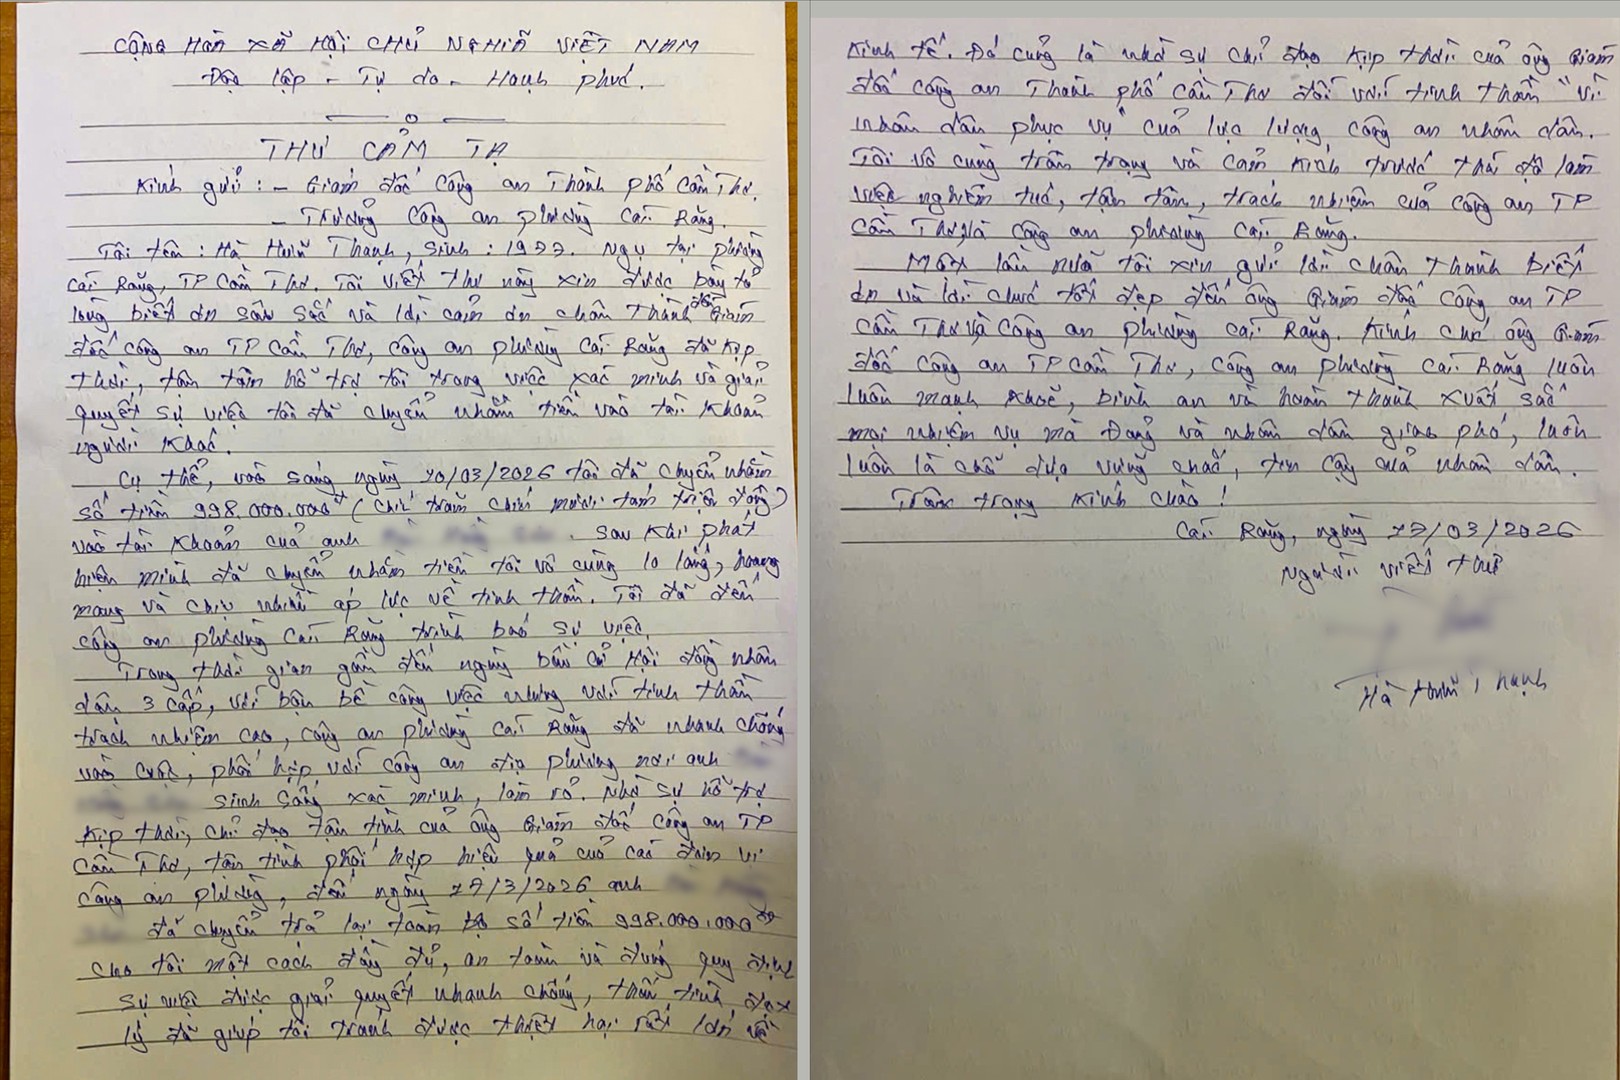 CỘNG HÒA XÃ HỘI CHỦ NGHĨA VIỆT NAM
Độc lập - Tự do - Hạnh phúc.
THƯ CẢM TẠ
Kính gửi : - Giám đốc Công an Thành phố Cần Thơ.
- Trưởng Công an phường Cái Răng.
Tôi tên : Hà Hữu Thạnh, sinh : 1977. Ngụ tại phường
Cái Răng, TP Cần Thơ. Tôi viết thư này xin được bày tỏ
lòng biết ơn sâu sắc và lời cảm ơn chân thành đến Giám
đốc công an TP Cần Thơ, Công an phường Cái Răng đã kịp
thời, tận tâm hỗ trợ tôi trong việc xác minh và giải
quyết sự việc tôi đã chuyển nhầm tiền vào tài khoản
người khác.
Cụ thể, vào sáng ngày 10/03/2026 tôi đã chuyển nhầm
số tiền 998.000.000đ (Chín trăm chín mươi tám triệu đồng)
vào tài khoản của anh . Sau khi phát
hiện mình đã chuyển nhầm tiền tôi vô cùng lo lắng, hoang
mang và chịu nhiều áp lực về tinh thần. Tôi đã đến
công an phường Cái Răng trình báo sự việc.
Trong thời gian gần đến ngày bầu cử Hội đồng nhân
dân 3 cấp, với bộn bề công việc nhưng với tinh thần
trách nhiệm cao, công an phường Cái Răng đã nhanh chóng
vào cuộc, phối hợp với công an địa phương nơi anh
sinh sống xác minh, làm rõ. Nhờ sự hỗ trợ
kịp thời, chỉ đạo tận tình của ông Giám đốc Công an TP
Cần Thơ, tận tình phối hợp hiệu quả của các đơn vị
công an phường, đến ngày 17/3/2026 anh
đã chuyển trả lại toàn bộ số tiền 998.000.000đ
cho tôi một cách đầy đủ, an toàn và đúng quy định
Sự việc được giải quyết nhanh chóng, thấu tình đạt
lý đã giúp tôi tránh được thiệt hại rất lớn về
kinh tế. Đó cũng là nhờ sự chỉ đạo kịp thời của ông Giám
đốc công an Thành phố Cần Thơ đối với tinh thần "Vì
nhân dân phục vụ" của lực lượng công an nhân dân.
Tôi vô cùng trân trọng và cảm kích trước thái độ làm
việc nghiêm túc, tận tâm, trách nhiệm của Công an TP
Cần Thơ và Công an phường Cái Răng.
Một lần nữa tôi xin gửi lời chân thành biết
ơn và lời chúc tốt đẹp đến ông Giám đốc Công an TP
Cần Thơ và Công an phường Cái Răng. Kính chúc ông Giám
đốc Công an TP Cần Thơ, Công an phường Cái Răng luôn
luôn mạnh khoẻ, bình an và hoàn thành xuất sắc
mọi nhiệm vụ mà Đảng và nhân dân giao phó, luôn
luôn là chỗ dựa vững chắc, tin cậy của nhân dân.
Trân trọng Kính chào !
Cái Răng, ngày 17/03/2026
Người viết thư
Hà Hữu Thạnh